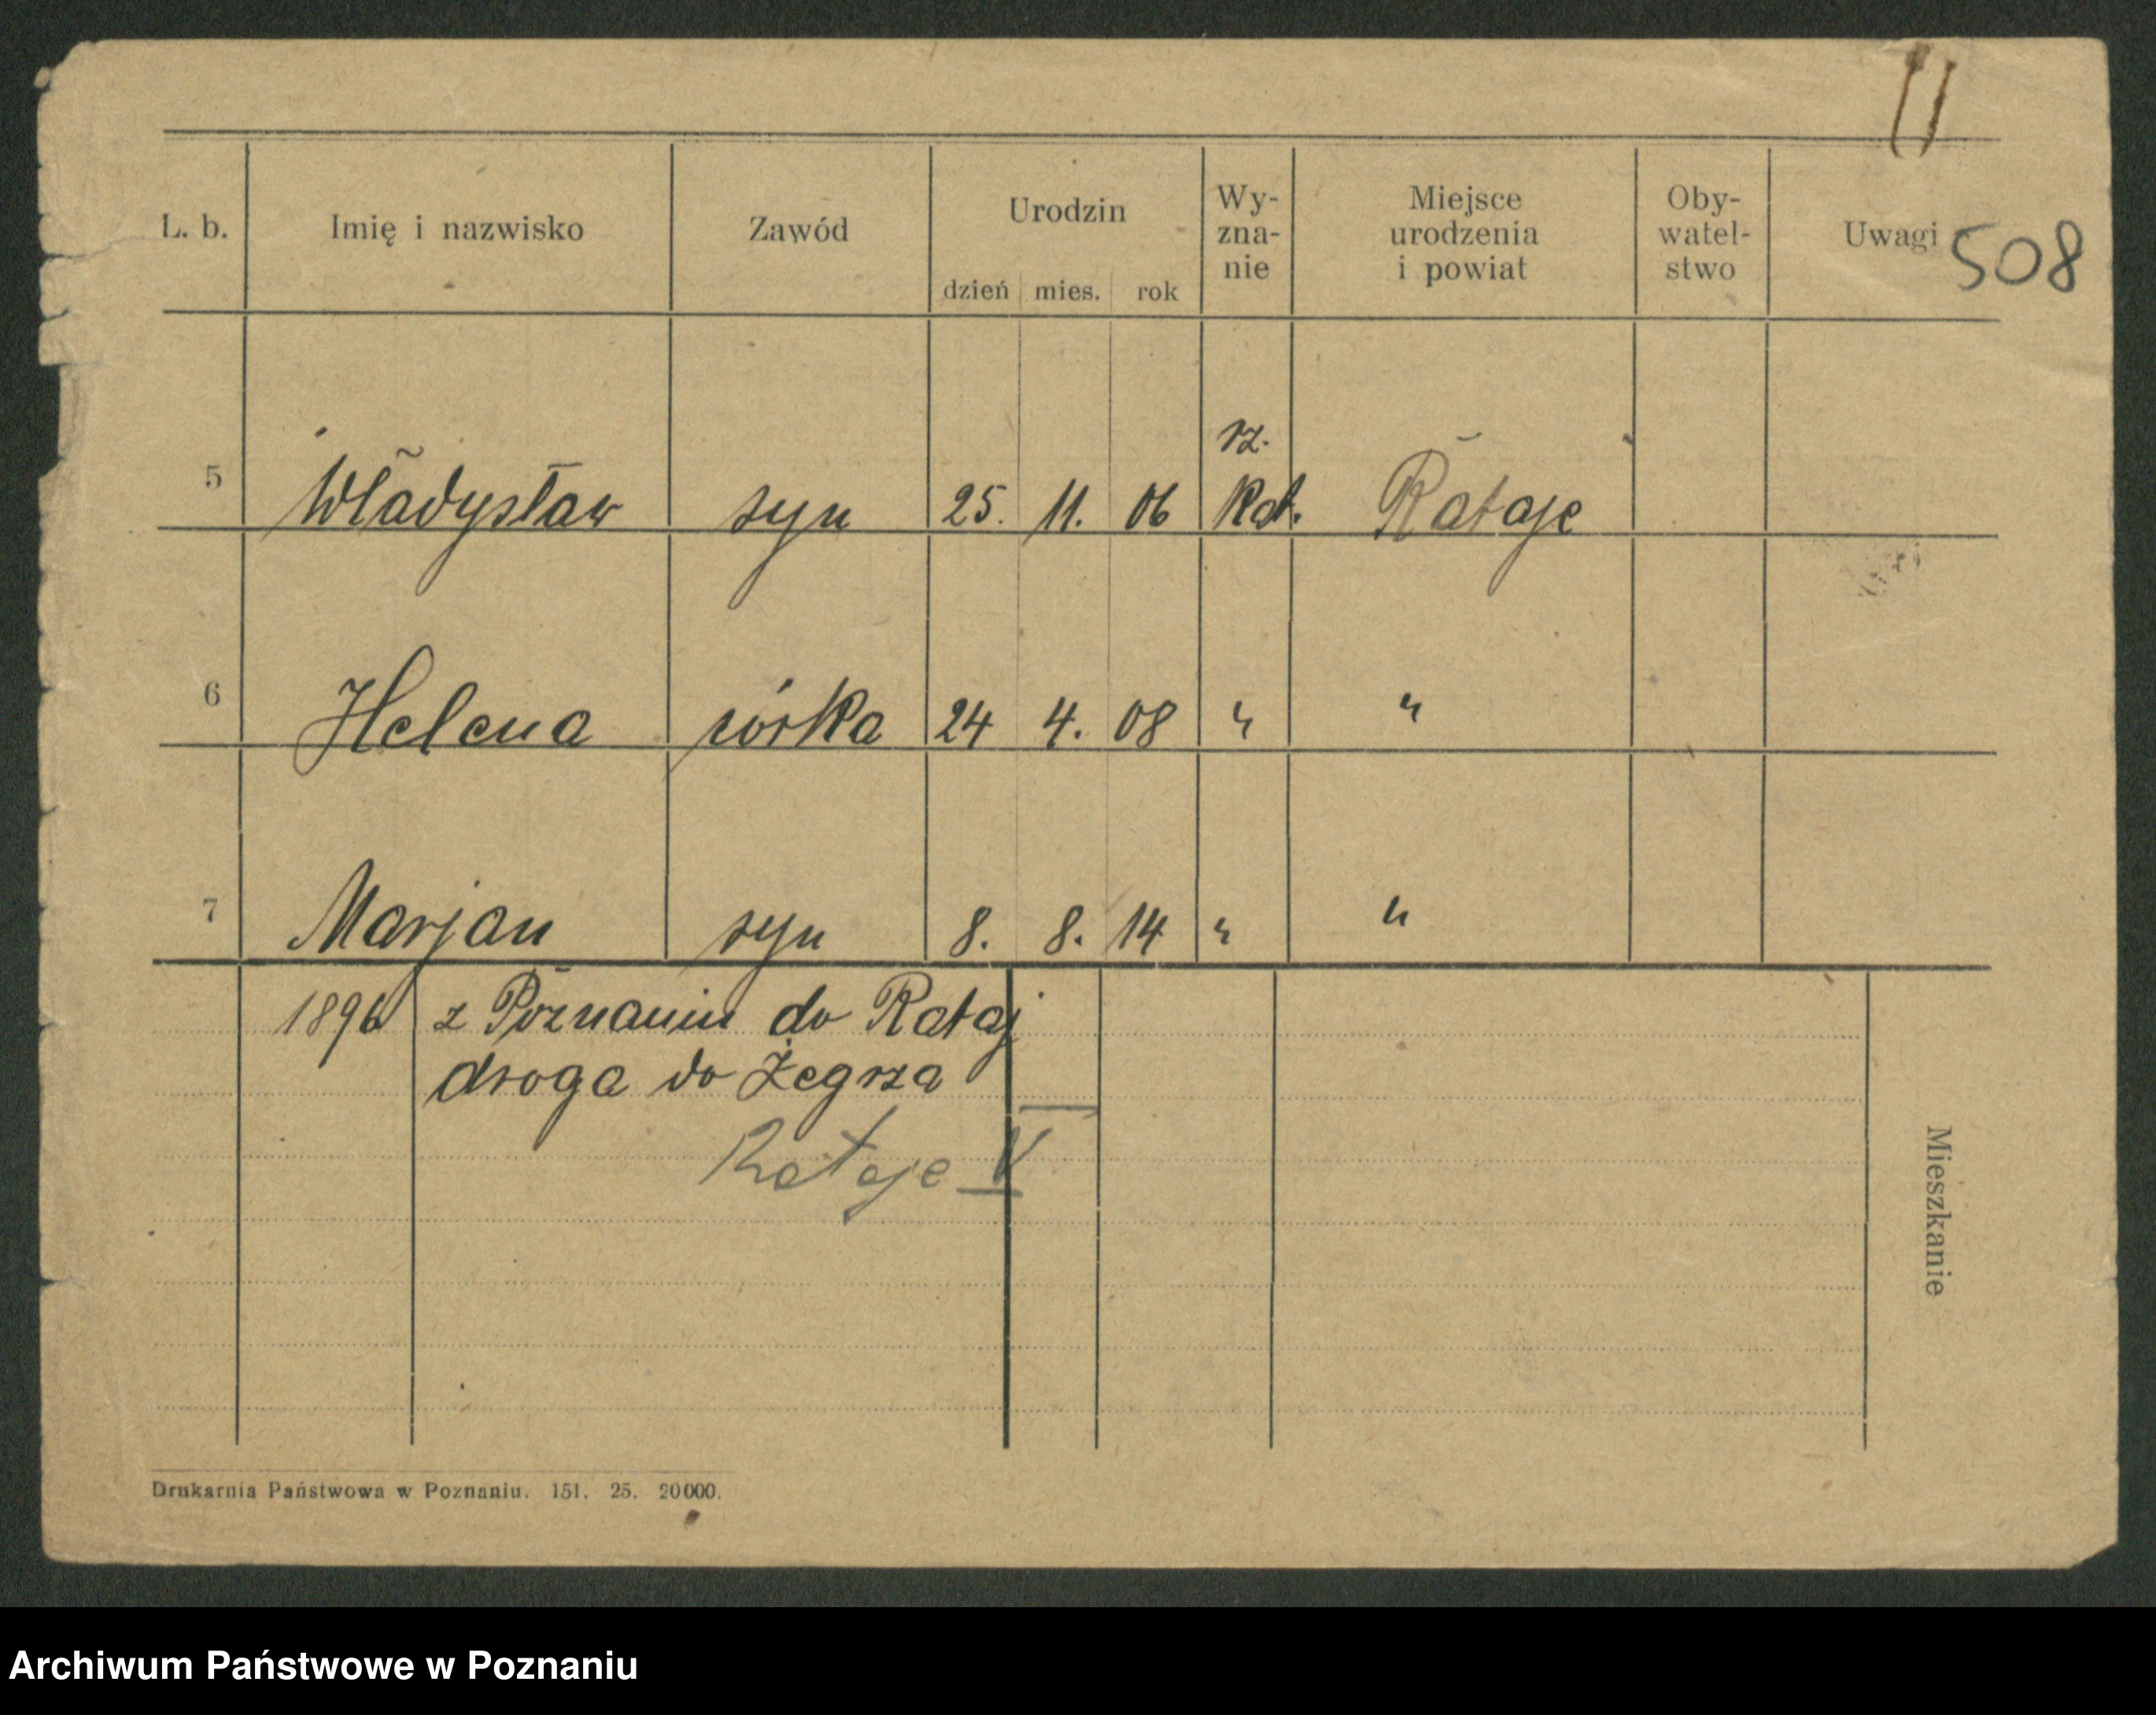 11
L. b. Imię i nazwisko Zawód Urodzin dzień mies. rok Wy-zna-nie Miejsce urodzenia i powiat Oby-watel-stwo Uwagi 508
5 Władysław syn 25. 11. 06 rz. Kat. Rataje
6 Helena córka 24 4. 08 " "
7 Marjan syn 8. 8. 14 " "
1896 z Poznaniu do Rataj
droga do Żegrza
Rataje V
Mieszkanie
Drukarnia Państwowa w Poznaniu. 151. 25. 20000.
Archiwum Państwowe w Poznaniu